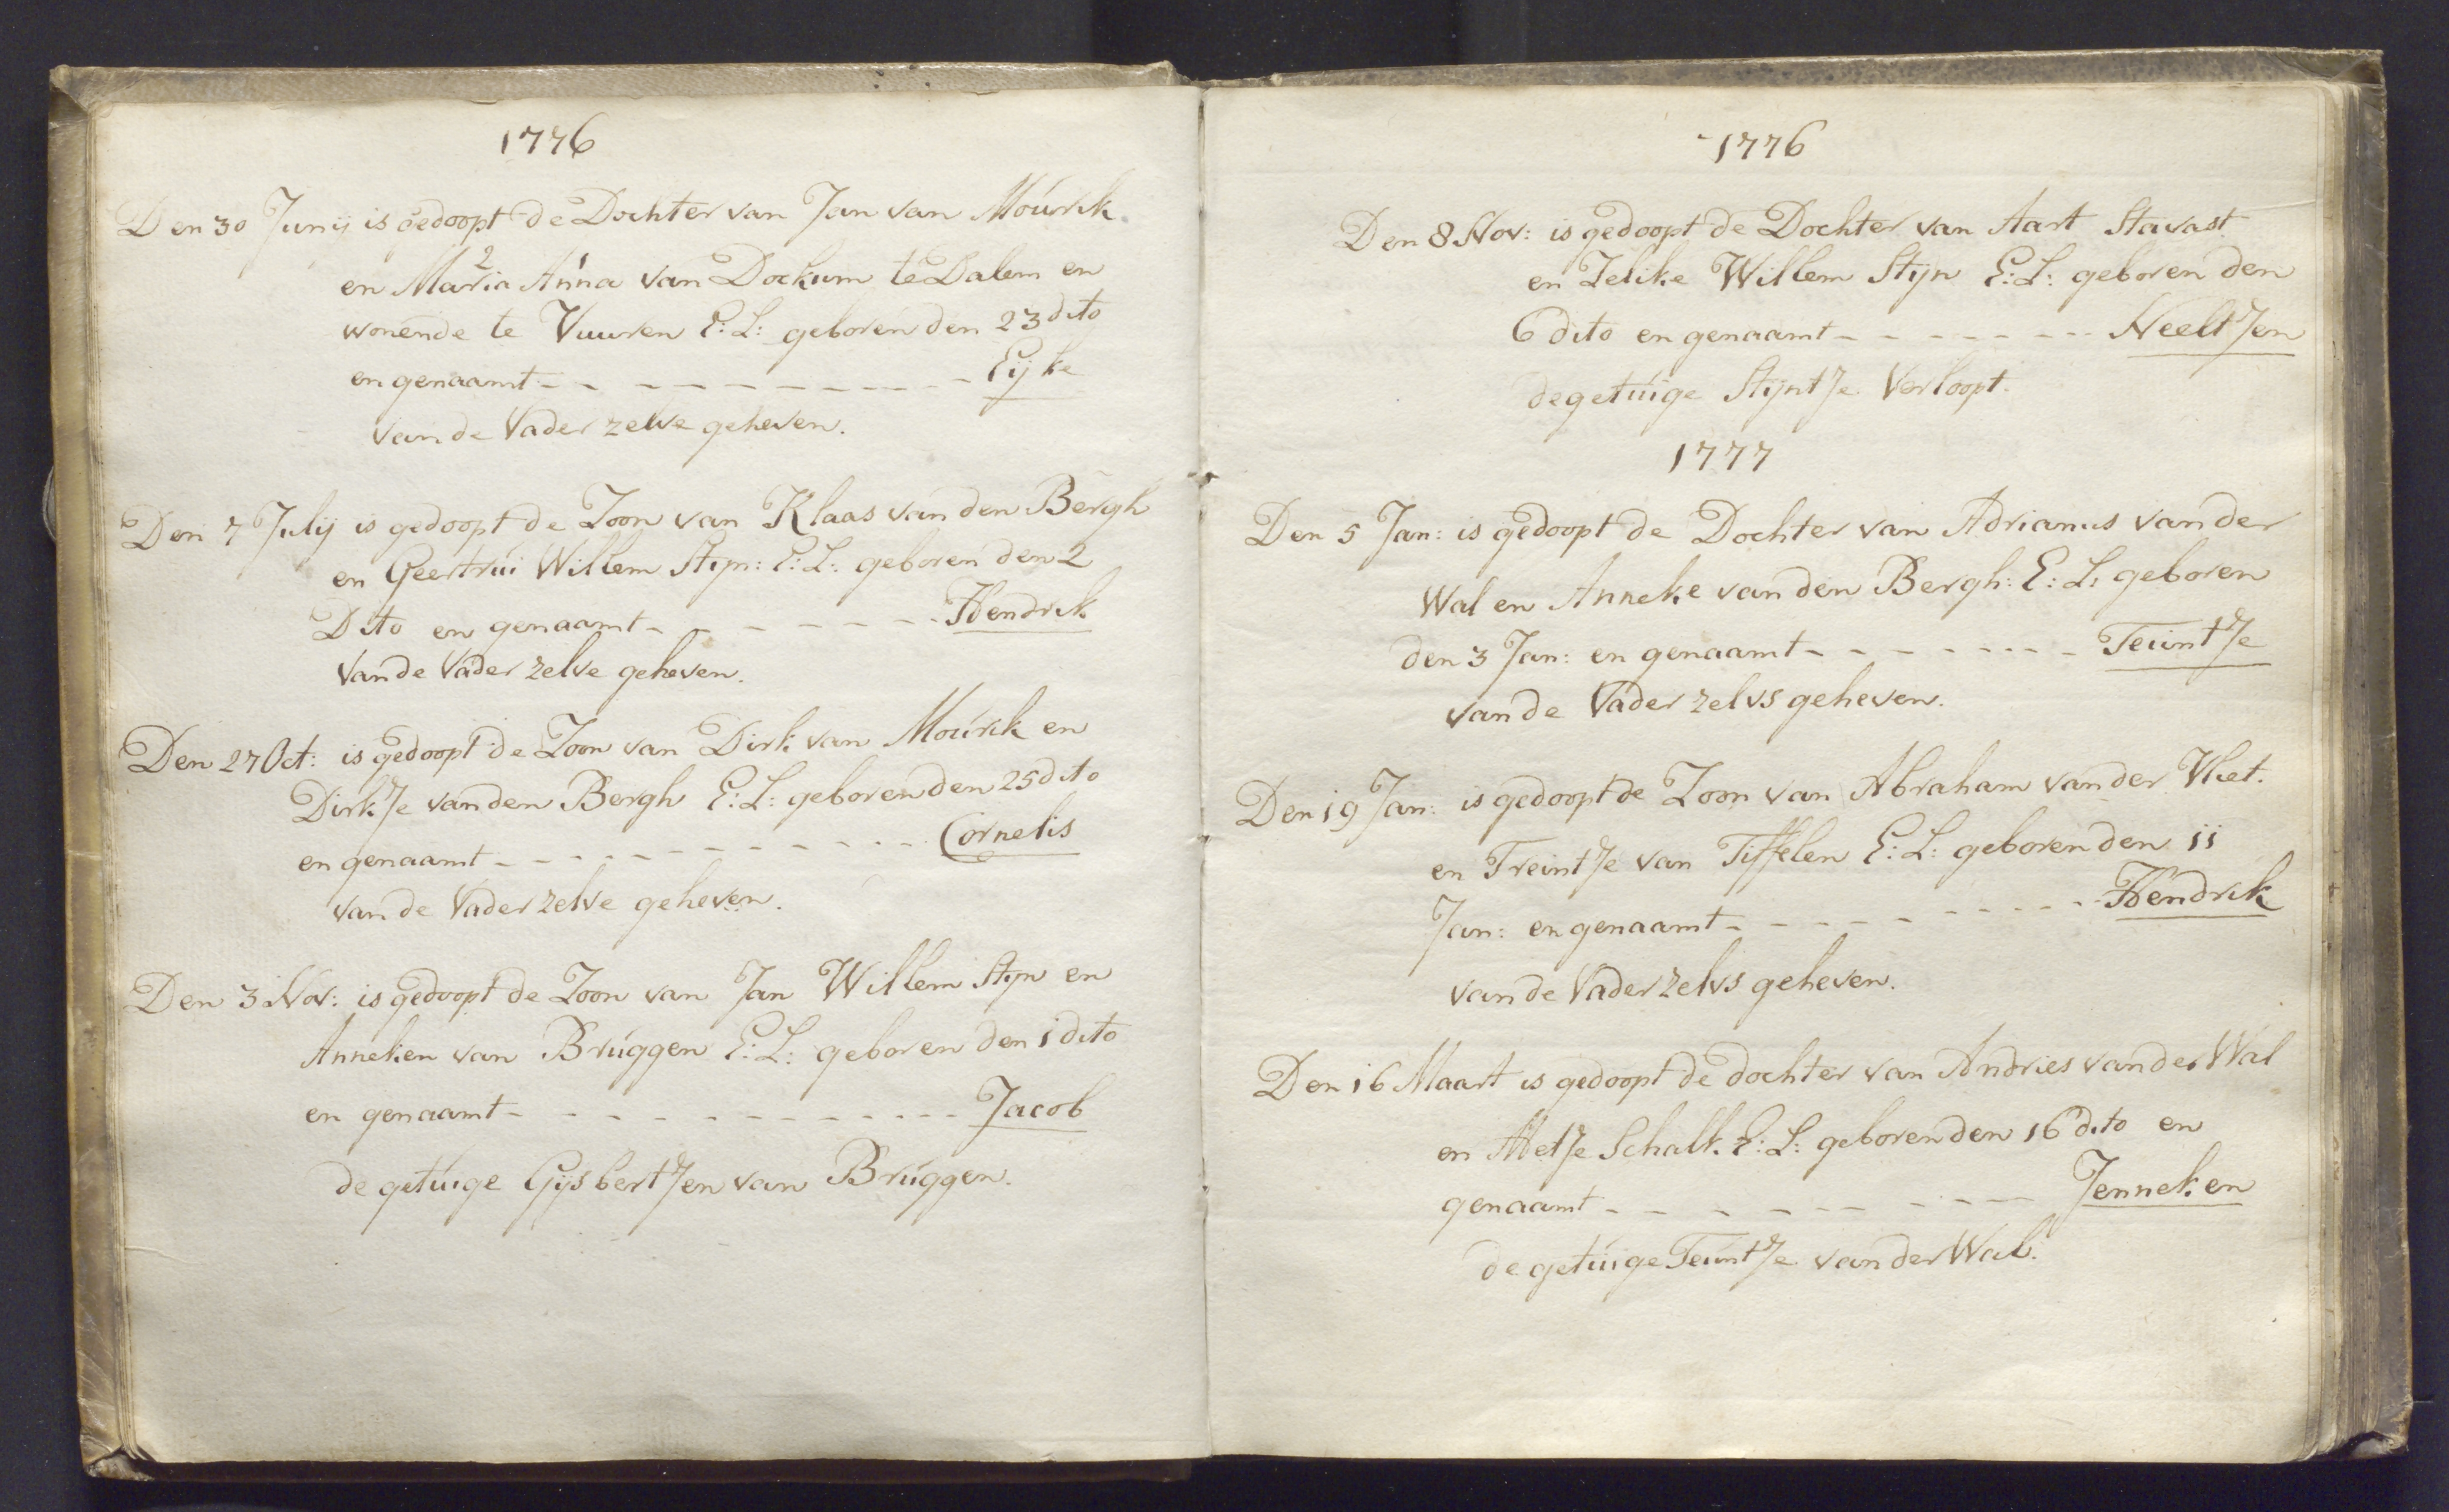 1776
Den 30 Junij is gedoopt de Dochter van Jan van Moúrik
2 1
en Maria Anna van Dockum te Dalem en
wonende te Vuuren E: L: geboren den 23 dito
en genaamt - - - - - - - - - - Eijke
van de Vader zelve geheven.
Den 7 Julij is gedoopt de Zoon van Klaas van den Bergh
en Geertrúi Willem Stijn: E: L: geboren den 2
Dito en genaamt - - - - - - - Hendrik
van de Vader zelve geheven.
Den 27 Oct: is gedoopt de Zoon van Dirk van Moúrik en
DirkJe van den Bergh E: L: geboren den 25 dito
en genaamt - - - - - - - - - - - Cornelis
van de Vader zelve geheven.
Den 3 Nov: is gedoopt de Zoon van Jan Willem Stijn en
Anneken van Brúggen E: L: geboren den 1 dito
en genaamt - - - - - - - - - - - Jacob
de getúige GijsbertJen van Brúggen.
1776
Den 8 Nov: is gedoopt de Dochter van Aart Stavast
en Zelike Willem Stijn E: L: geboren den
6 dito en genaamt - - - - - - - NeeltJen
de getúige StijntJe Verloopt.
1777
Den 5 Jan: is gedoopt de Dochter van Adrianus van der
Wal en Anneke van den Bergh: E: L: geboren
den 3 Jan: en genaamt - - - - - - - TeúntJe
van de Vader zelvs geheven.
Den 19 Jan: is gedoopt de Zoon van Abraham van der Vliet.
en TreintJe van Tiffelen E: L: geboren den 11
Jan: en genaamt - - - - - - - - - Hendrik
van de Vader zelvs geheven.
Den 16 Maart is gedoopt de dochter van Andries van der Wal
en MetJe Schalk E: L: geboren den 16 dito en
genaamt - - - - - - - - - Jenneken
de getúige TeúntJe van der Wal.